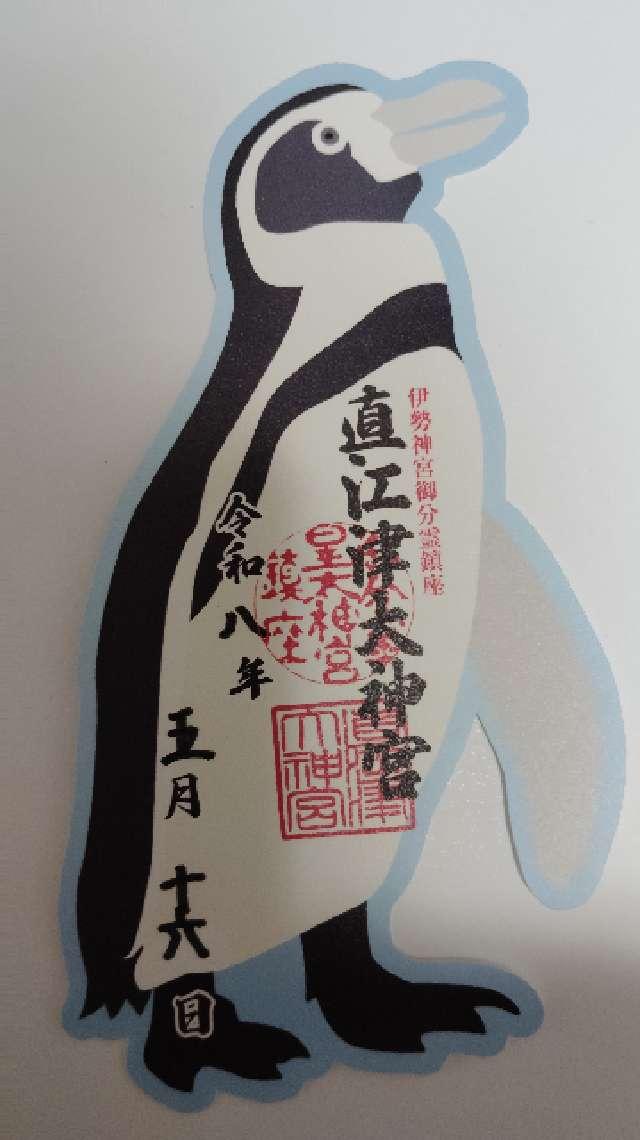 伊勢神宮御分霊鎮座
直江津大神宮
鎮座
直江津
大神宮
令和八年
五月十六日